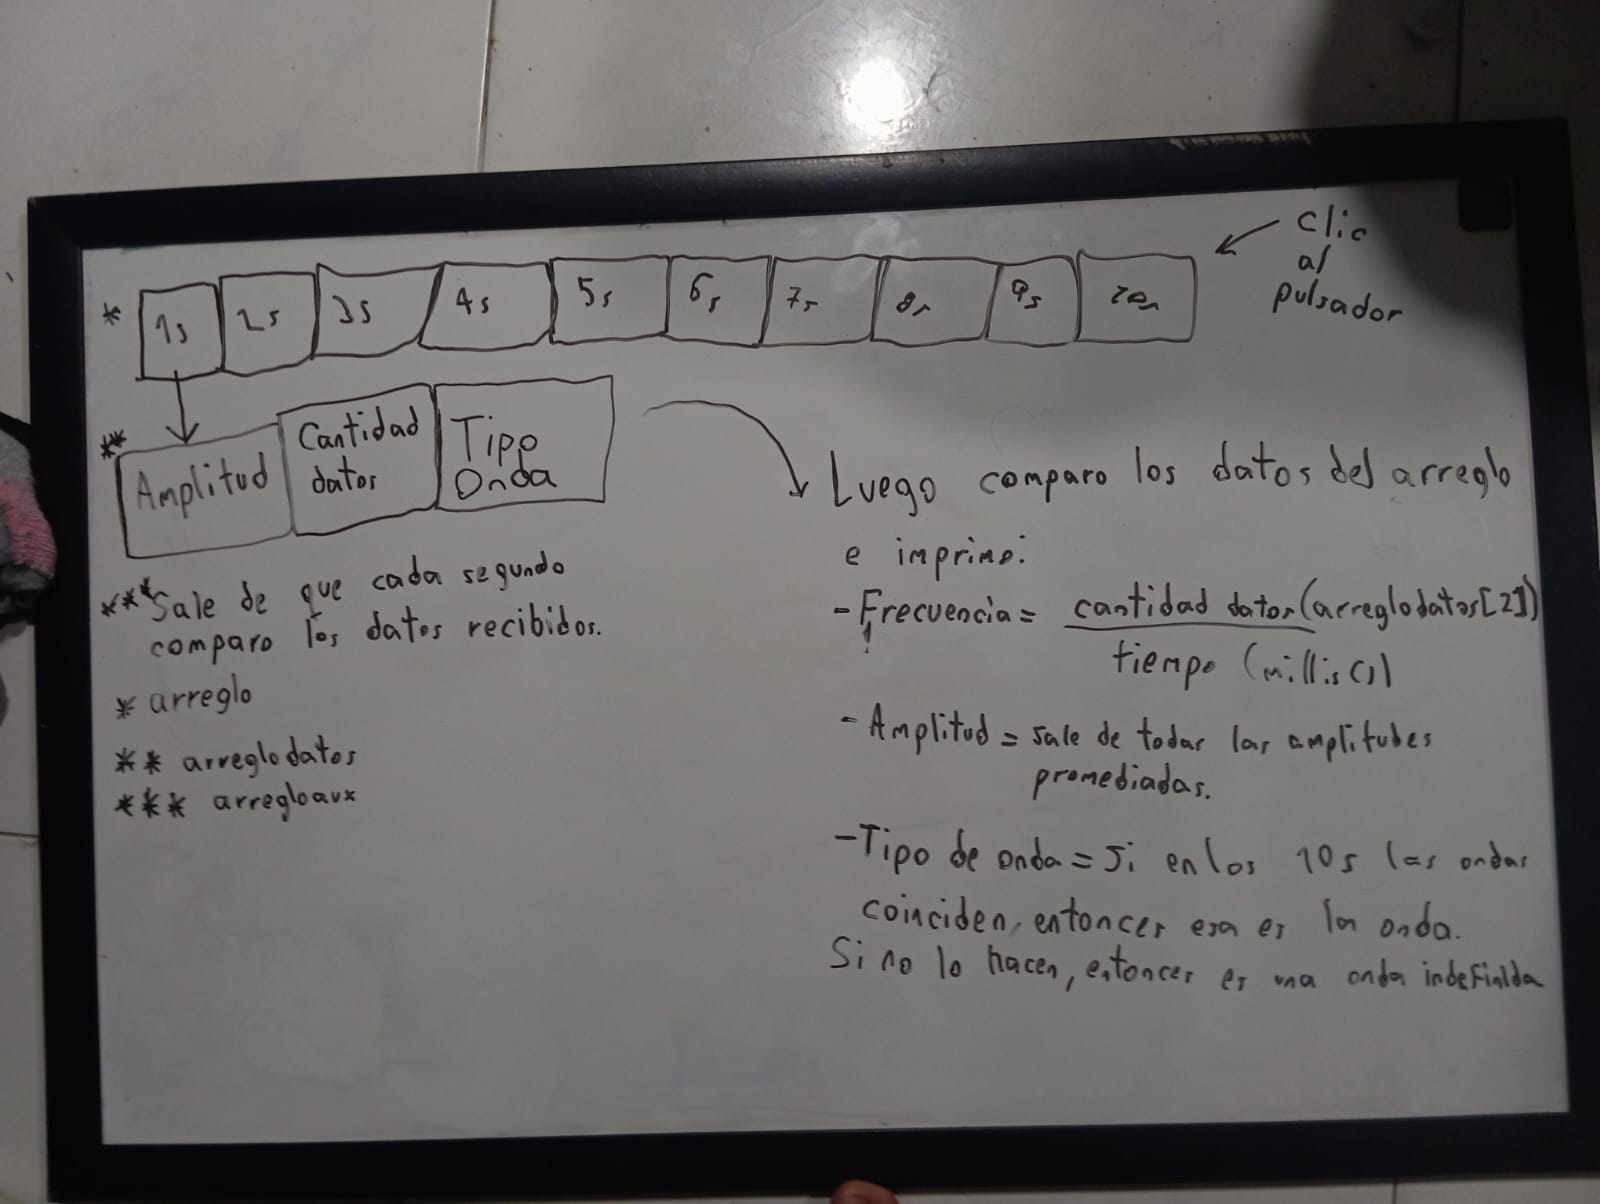 * 1s 2s 3s 4s 5s 6s 7s 8s 9s 10s
Clic
al
pulsador
** Amplitud
Cantidad
datos
Tipo
Onda
*** Sale de que cada segundo
comparo los datos recibidos.
* arreglo
** arreglodatos
*** arregloaux
Luego comparo los datos del arreglo
e imprimo:
- Frecuencia = cantidad datos (arreglodatos[2])
tiempo (millis())
- Amplitud = sale de todas las amplitudes
promediadas.
- Tipo de onda = Si en los 10s las ondas
coinciden, entonces esa es la onda.
Si no lo hacen, entonces es una onda indefinida